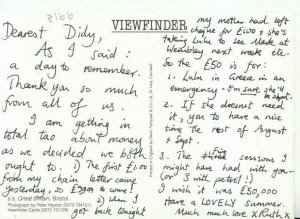 8166
VIEWFINDER
Dearest Didy,
As I said:
a day to remember.
Thank you so much
from all of us.
I am getting in
total tao about money
as we decided we both
ought to. 1) The first £1.00
from my chain letter came
yesterday, so to come!
2) when I
got back tonight
s.s. Great Britain, Bristol.
Photograph by Peter Haynes (0272 734191)
Viewfinder Cards (0272 731729)
my mother had left
cheque for £100 & she's
taking Lulu to see Madonna at
Wembley next week etc.
So the £50 is for:
1. Lulu in Greece in an
emergency - I'm sure she'll
2. If she doesn't need
it, you to have a nice
time the rest of August
& Sept.
3. The three sessions I
might have had with you
(or I will actual!)
I wish it was £50,000
Have a LOVELY summer.
Much much love x Ruth x